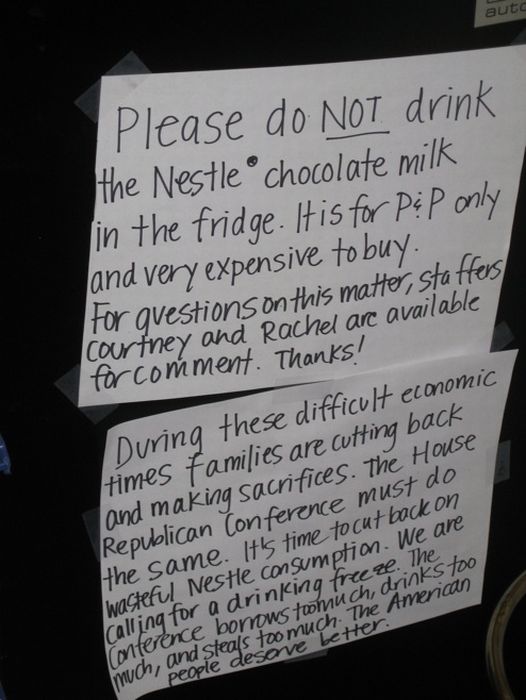 auto
Please do NOT drink
the Nestle chocolate milk
in the fridge. It is for P&P only
and very expensive to buy.
For questions on this matter, staffers
Courtney and Rachel are available
for comment. Thanks!
During these difficult economic
times families are cutting back
and making sacrifices. The House
Republican Conference must do
the same. It's time to cut back on
wasteful Nestle consumption. We are
calling for a drinking freeze. The
Conference borrows too much, drinks too
much, and steals too much. The American
people deserve better.